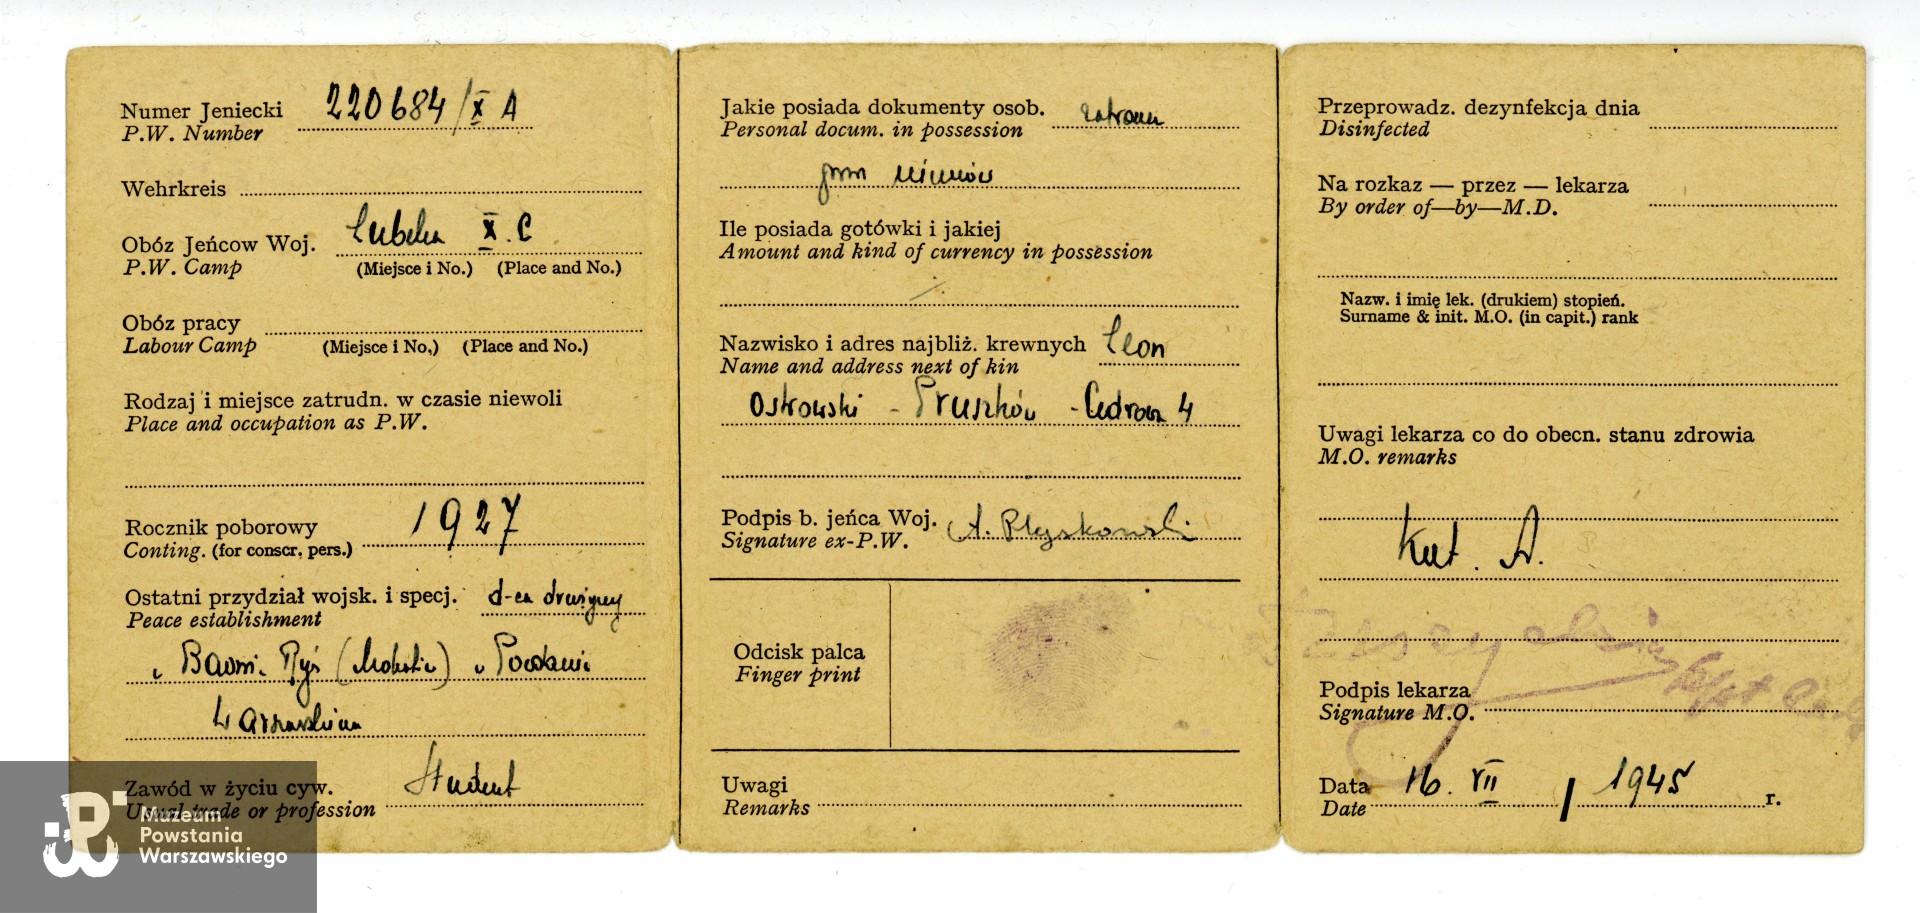 Numer Jeniecki 220684/X A
P.W. Number
Wehrkreis
Obóz Jeńcow Woj. Lubeka X. C
P.W. Camp (Miejsce i No.) (Place and No.)
Obóz pracy
Labour Camp (Miejsce i No,) (Place and No.)
Rodzaj i miejsce zatrudn. w czasie niewoli
Place and occupation as P.W.
Rocznik poborowy 1927
Conting. (for conscr. pers.)
Ostatni przydział wojsk. i specj. d-ca drużyny
Peace establishment
w Baonie Ryś (Mokotów) w Powstaniu
Warszawskim
Zawód w życiu cyw. Student
Usual trade or profession
Muzeum
Powstania
Warszawskiego
Jakie posiada dokumenty osob. zabrane
Personal docum. in possession
przez niemców
Ile posiada gotówki i jakiej
Amount and kind of currency in possession
Nazwisko i adres najbliż. krewnych Leon
Name and address next of kin
Ostrowski - Pruszków - Cedrowa 4
Podpis b. jeńca Woj. A. Płyskowski
Signature ex-P.W.
Odcisk palca
Finger print
Uwagi
Remarks
Przeprowadz. dezynfekcja dnia
Disinfected
Na rozkaz — przez — lekarza
By order of—by—M.D.
Nazw. i imię lek. (drukiem) stopień.
Surname & init. M.O. (in capit.) rank
Uwagi lekarza co do obecn. stanu zdrowia
M.O. remarks
Kat. A.
Podpis lekarza
Signature M.O.
Data 16. VII / 1945 r.
Date